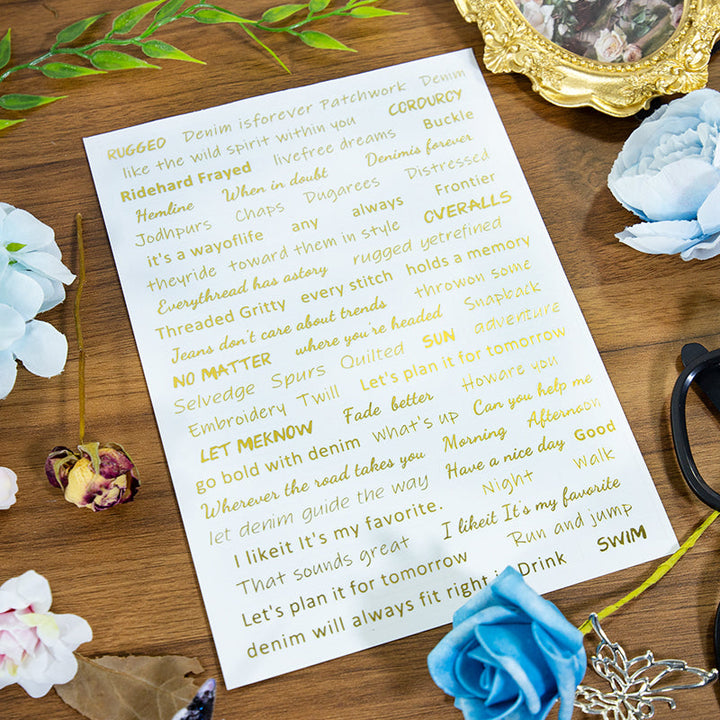 RUGGED Denim isforever Patchwork Denim
like the wild spirit within you CORDURCY
Ridehard Frayed livefree dreams Buckle
Hemline When in doubt Denimis forever
Jodhpurs Chaps Dugarees Distressed
it's a wayoflife any always Frontier
theyride toward them in style OVERALLS
Everythread has astory rugged yetrefined
Threaded Gritty every stitch holds a memory
Jeans don't care about trends throwon some
NO MATTER where you're headed Snapback
Selvedge Spurs Quilted SUN adventure
Embroidery Twill Let's plan it for tomorrow
LET MEKNOW Fade better Howare you
go bold with denim what's up Can you help me
Wherever the road takes you Morning Afternoon
let denim guide the way Have a nice day Good
I likeit It's my favorite. Night Walk
That sounds great I likeit It's my favorite
Let's plan it for tomorrow Run and jump
denim will always fit right in Drink SWIM